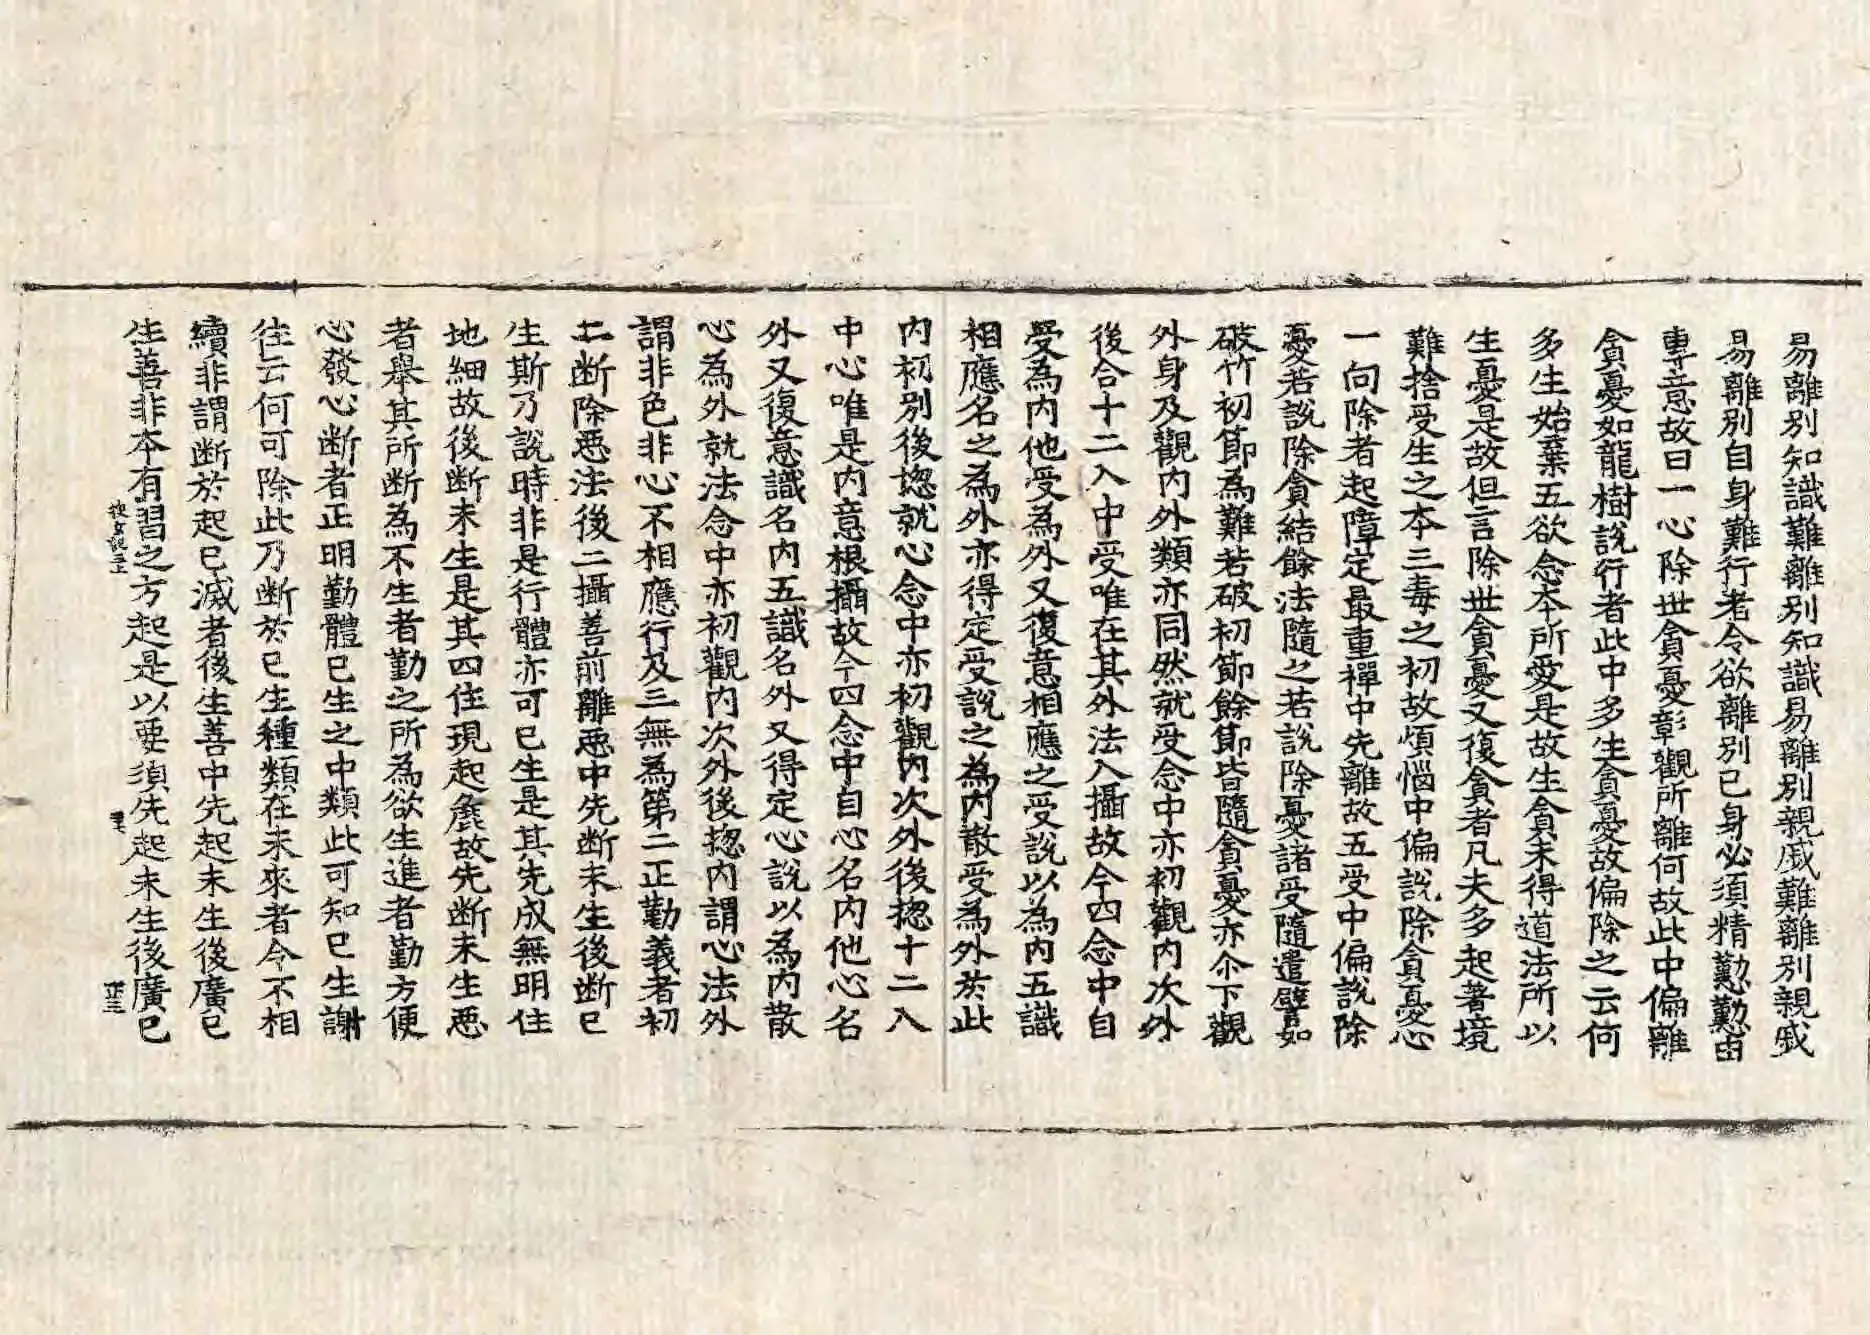 易離別知識難離別知識易離別親戚難離別親戚
易離別自身難行者令欲離別己身必須精懃懃由
專意故曰一心除世貪憂彰觀所離何故此中偏離
貪憂如龍樹說行者此中多生貪憂故偏除之云何
多生始棄五欲念本所愛是故生貪未得道法所以
生憂是故但言除世貪憂又復貪者凡夫多起著境
難捨受生之本三毒之初故煩惱中偏說除貪憂心
一向除者起障定最重禪中先離故五受中偏說除
憂若說除貪結餘法隨之若說除憂諸受隨遣譬如
破竹初節為難若破初節餘節皆隨貪憂亦尒下觀
外身及觀內外類亦同然就受念中亦初觀內次外
後合十二入中受唯在其外法入攝故今四念中自
受為內他受為外又復意相應之受說以為內五識
相應名之為外亦得定受說之為內散受為外於此
內初別後捴就心念中亦初觀內次外後捴十二入
中心唯是內意根攝故今四念中自心名內他心名
外又復意識名內五識名外又得定心說以為內散
心為外就法念中亦初觀內次外後捴內謂心法外
謂非色非心不相應行及三無為第二正勤義者初
二断除惡法後二攝善前離惡中先断未生後断已
生斯乃說時非是行體亦可已生是其先成無明住
地細故後断未生是其四住現起麁故先断未生惡
者舉其所断為不生者勤之所為欲生進者勤方便
心發心断者正明勤體已生之中類此可知已生謝
往云何可除此乃断於已生種類在未來者令不相
續非謂断於起已滅者後生善中先起未生後廣已
生善非本有習之方起是以要須先起未生後廣已